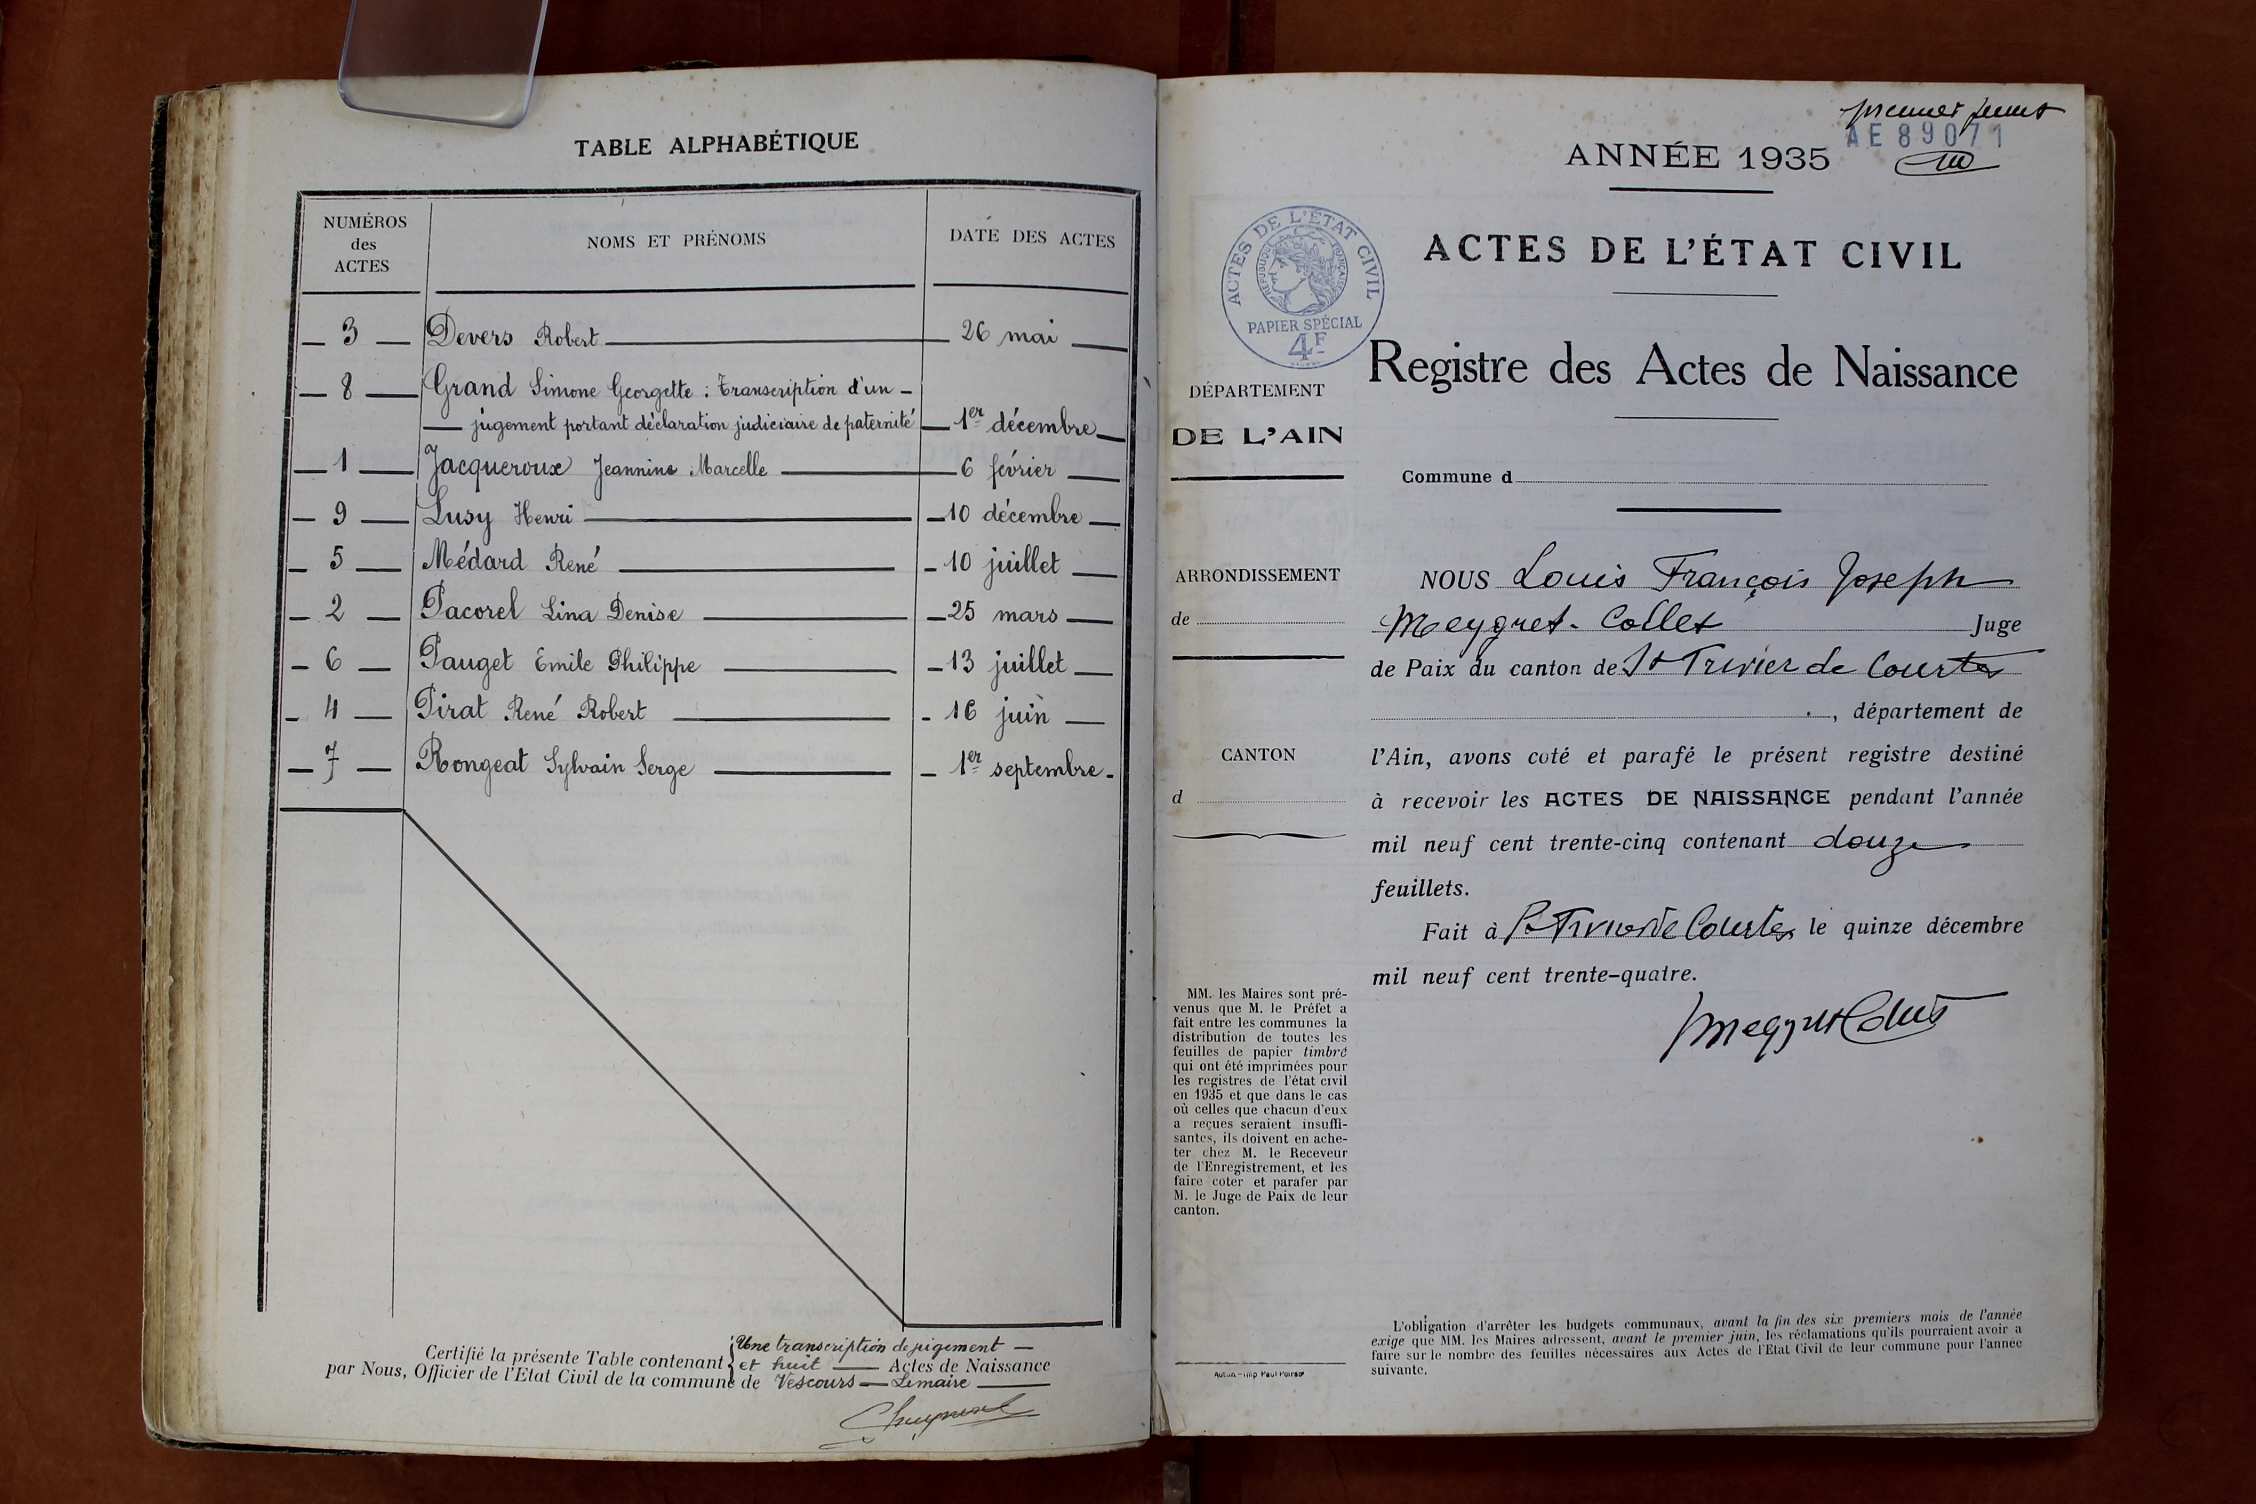 TABLE ALPHABÉTIQUE
NUMÉROS
des
ACTES
NOMS ET PRÉNOMS
DATE DES ACTES
3 Devers Robert 26 mai
8 Grand Simone Georgette : Transcription d'un
jugement portant déclaration judiciaire de paternité 1er décembre
1 Jacqueroux Jeannine Marcelle 6 février
9 Lusy Henri 10 décembre
5 Médard René 10 juillet
2 Pacorel Lina Denise 25 mars
6 Pauget Emile Philippe 13 juillet
4 Pirat René Robert 16 juin
7 Rongeat Sylvain Serge 1er septembre
Une transcription de jugement
Certifié la présente Table contenant et huit Actes de Naissance
par Nous, Officier de l'Etat Civil de la commune de Vescours Lemaire
premier
AE 89071
ANNÉE 1935
ACTES DE L'ÉTAT CIVIL
ACTES DE L'ÉTAT CIVIL
RÉPUBLIQUE FRANÇAISE
PAPIER SPÉCIAL
4F
Registre des Actes de Naissance
DÉPARTEMENT
DE L'AIN
Commune d
ARRONDISSEMENT
de
CANTON
d
NOUS Louis François Joseph
Meygret-Collet Juge
de Paix du canton de St Trivier de Courtes
, département de
l'Ain, avons coté et parafé le présent registre destiné
à recevoir les ACTES DE NAISSANCE pendant l'année
mil neuf cent trente-cinq contenant douze
feuillets.
Fait à St Trivier de Courtes le quinze décembre
mil neuf cent trente-quatre.
Meygret Collet
MM. les Maires sont pré-
venus que M. le Préfet a
fait entre les communes la
distribution de toutes les
feuilles de papier timbré
qui ont été imprimées pour
les registres de l'état civil
en 1935 et que dans le cas
où celles que chacun d'eux
a reçues seraient insuffi-
santes, ils doivent en ache-
ter chez M. le Receveur
de l'Enregistrement, et les
faire coter et parafer par
M. le Juge de Paix de leur
canton.
L'obligation d'arrêter les budgets communaux, avant la fin des six premiers mois de l'année
exige que MM. les Maires adressent, avant le premier juin, les réclamations qu'ils pourraient avoir a
faire sur le nombre des feuilles nécessaires aux Actes de l'Etat Civil de leur commune pour l'année
suivante.